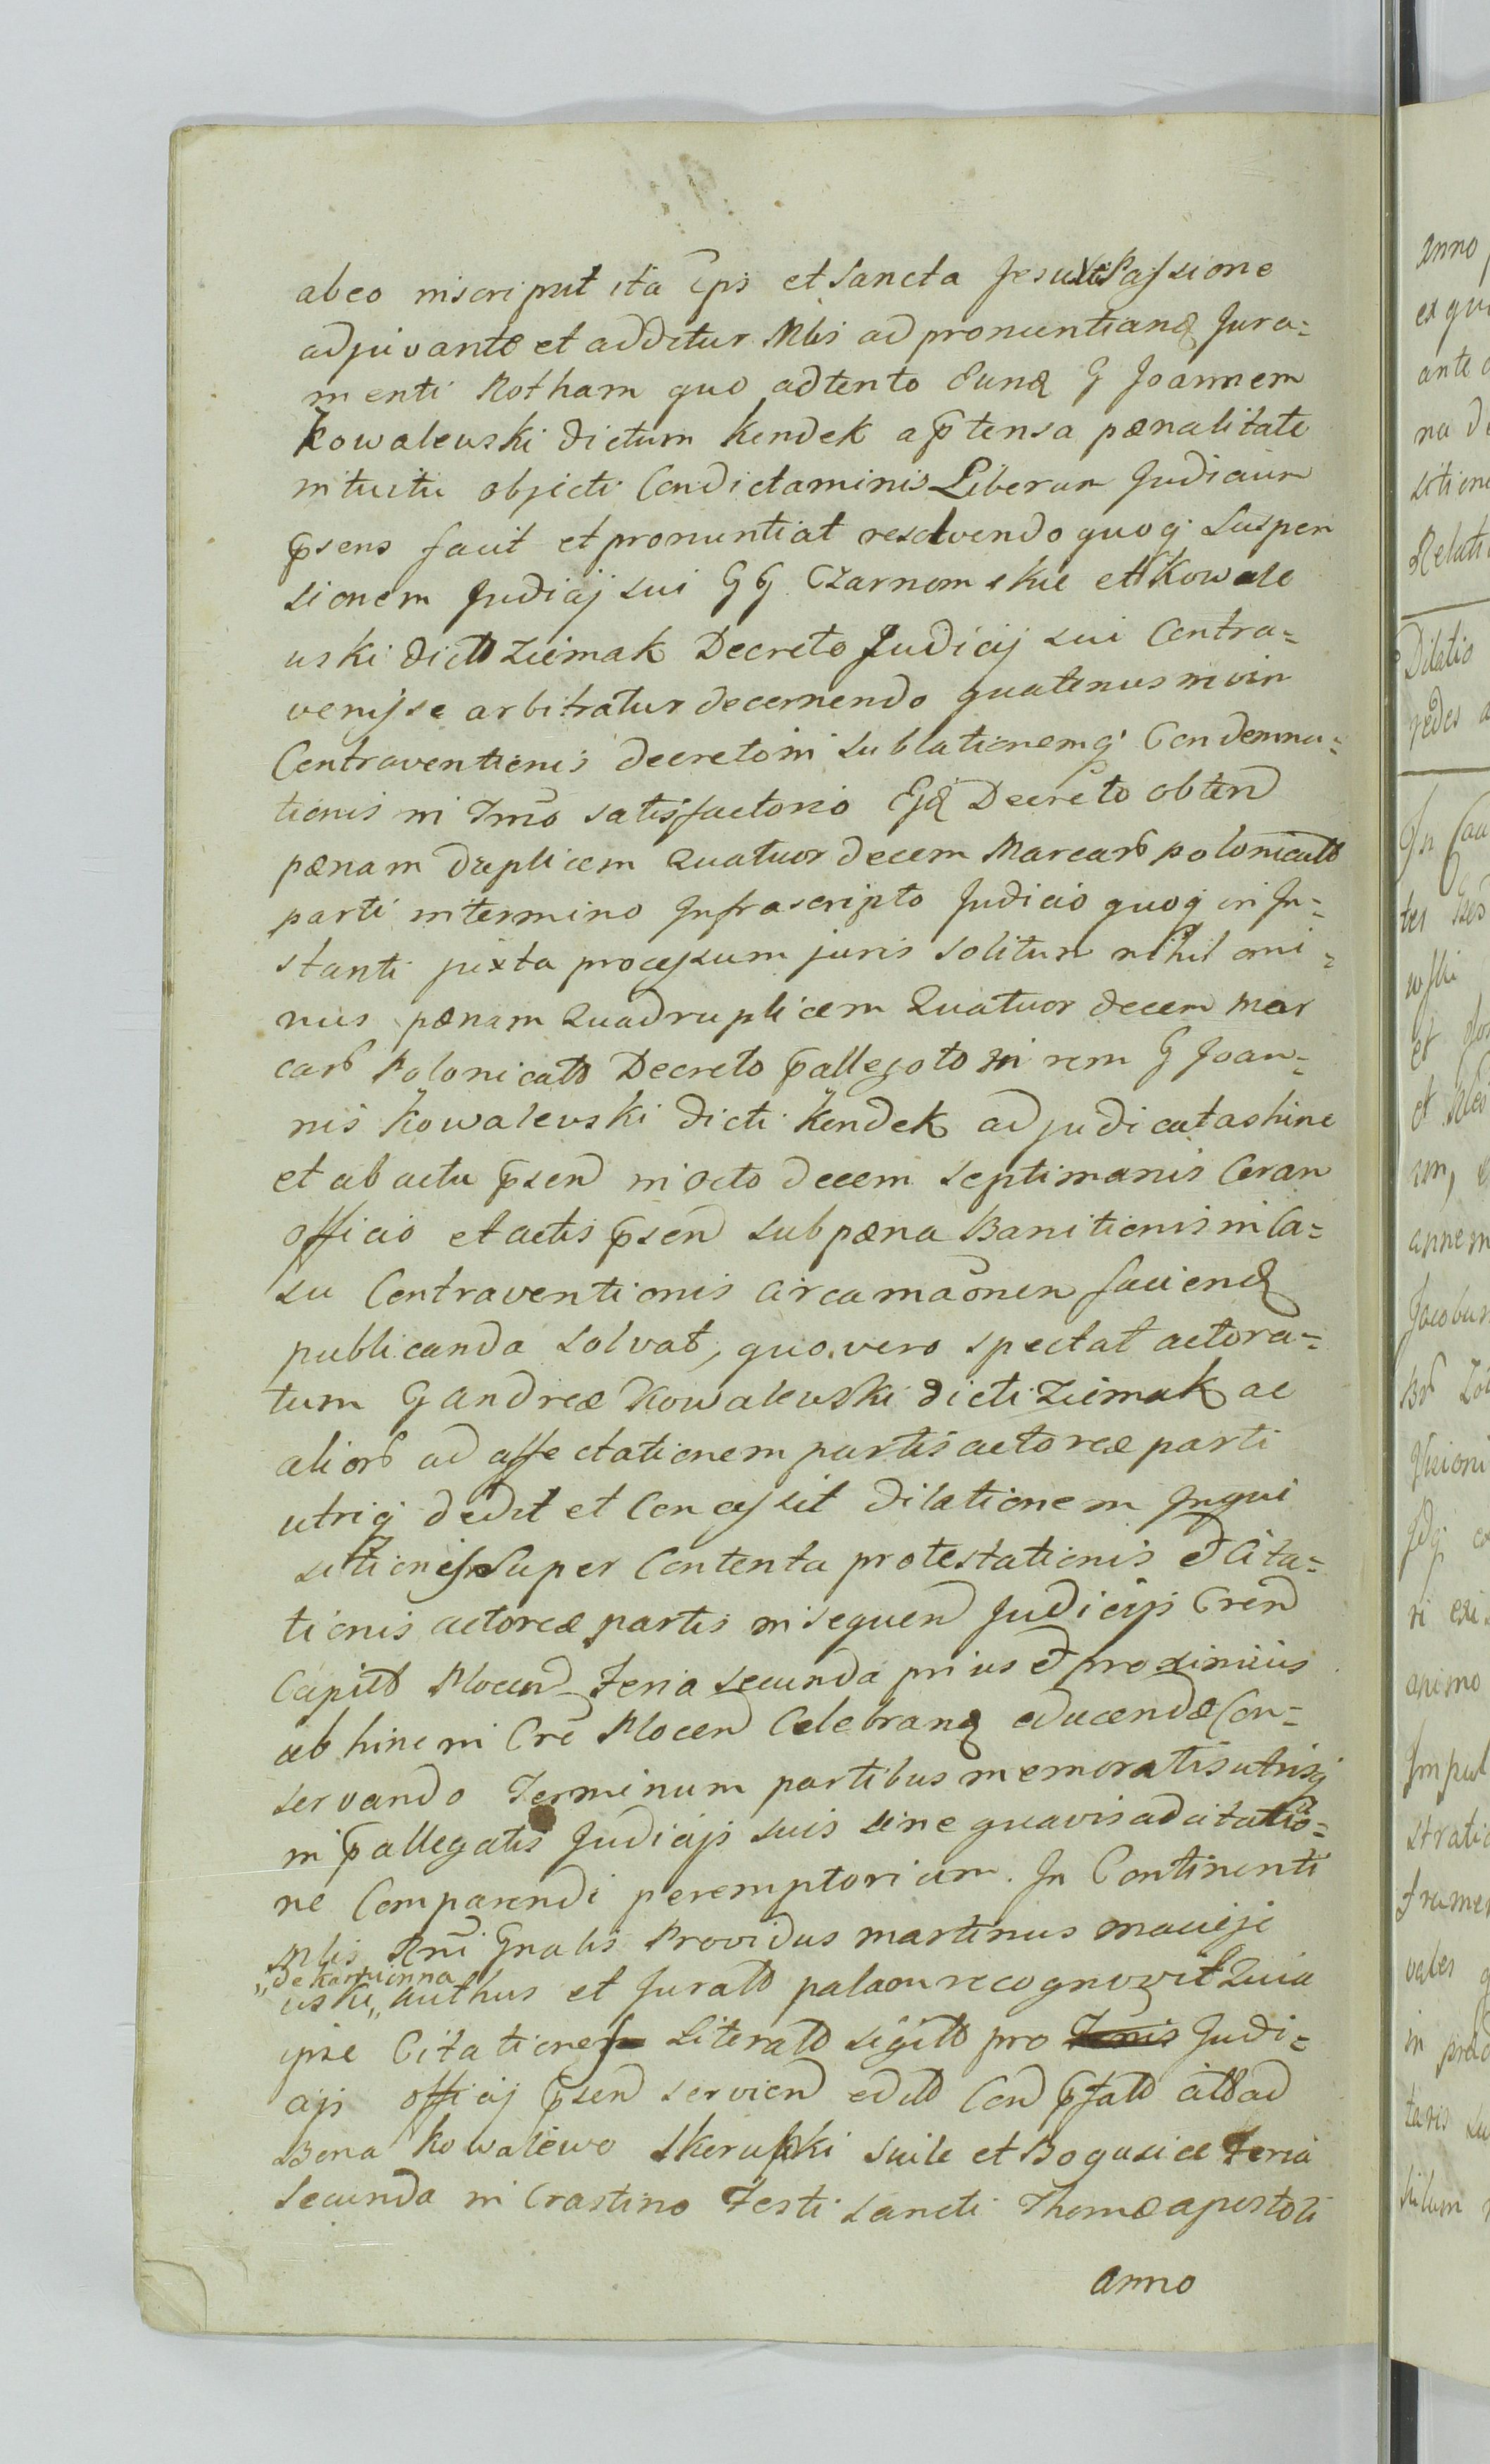 abeo inscriput ita Eps et Sancta Jesu Xti Passione
adjuvante et additur Mlis ad pronuntiand Jura=
menti Rotham quo adtento Eund G Joannem
Kowalewski dictum Kendek a ptensa pænalitate
intuitu objecti Condictaminis Liberum Judicium
psens facit et pronuntiat resolvendo quoq Suspen
sionem Judicij sui GG Czarnomskie et Kowale
uski dictt Ziemak Decreto Judicij sui Contra=
venisse arbitratur decernendo quatenus in vim
Contraventionis decretoin sublationemq Condemna=
tionis in Tmo satisfactorio Ejd Decreto obten
pænam duplicem Quatuor decem Marcar polonicatt
parti in termino Infrascripto Judicio quoq in In=
stanti juxta processum juris Solitum nihil omi=
nus pænam Quadruplicem Quatuor decem mar
car Polonicatt Decreto pallegato in rem G Joan=
nis Kowalewski dicti Kendek adjudicatas hinc
et ab actu psen in octo decem septimanis Coram
officio et actis psen sub pæna Banitionis in Ca=
su Contraventionis circa maonem faciend
publicanda solvat, quo vero spectat actora=
tum G Andreæ Kowalewski dicti Ziemak ac
alior ad affectationem partis actoreæ parti
utriq dedit et Concessit dilationem Inqui
sitiones Super Contenta protestationis et Cita=
tionis actoreæ partis in sequen Judicijs Cren
Capitt Plocen Feria secunda prius et proximius
ab hinc in Cre Plocen Celebrand educendæ Con=
servando Terminum partibus memoratis utrisq
in pallegatis Judicijs suis sine quavis adcitatio=
ne Comparendi peremptorium. In Continenti
Mlis Rni Gnalis Providus martinus macieje
"de Karwinna
uski" authus et Juratt palam recognovit Quia
ipse Citationes Literatt sigitt pro Judi=
cijs officij psen servien editt Con pfatt att ad
Bona Kowalewo Skerupki Suile et Bogusice Feria
Secunda in Crastino Festi Sancti Thomæ apostoli
anno
anno
ex qui
ante
na de
sitione
Relati
Dilatio
redes
In Cau
tes
wski
et
et
annem
Jacobum
animo
Impul
strati
trumen
vales
in
taris